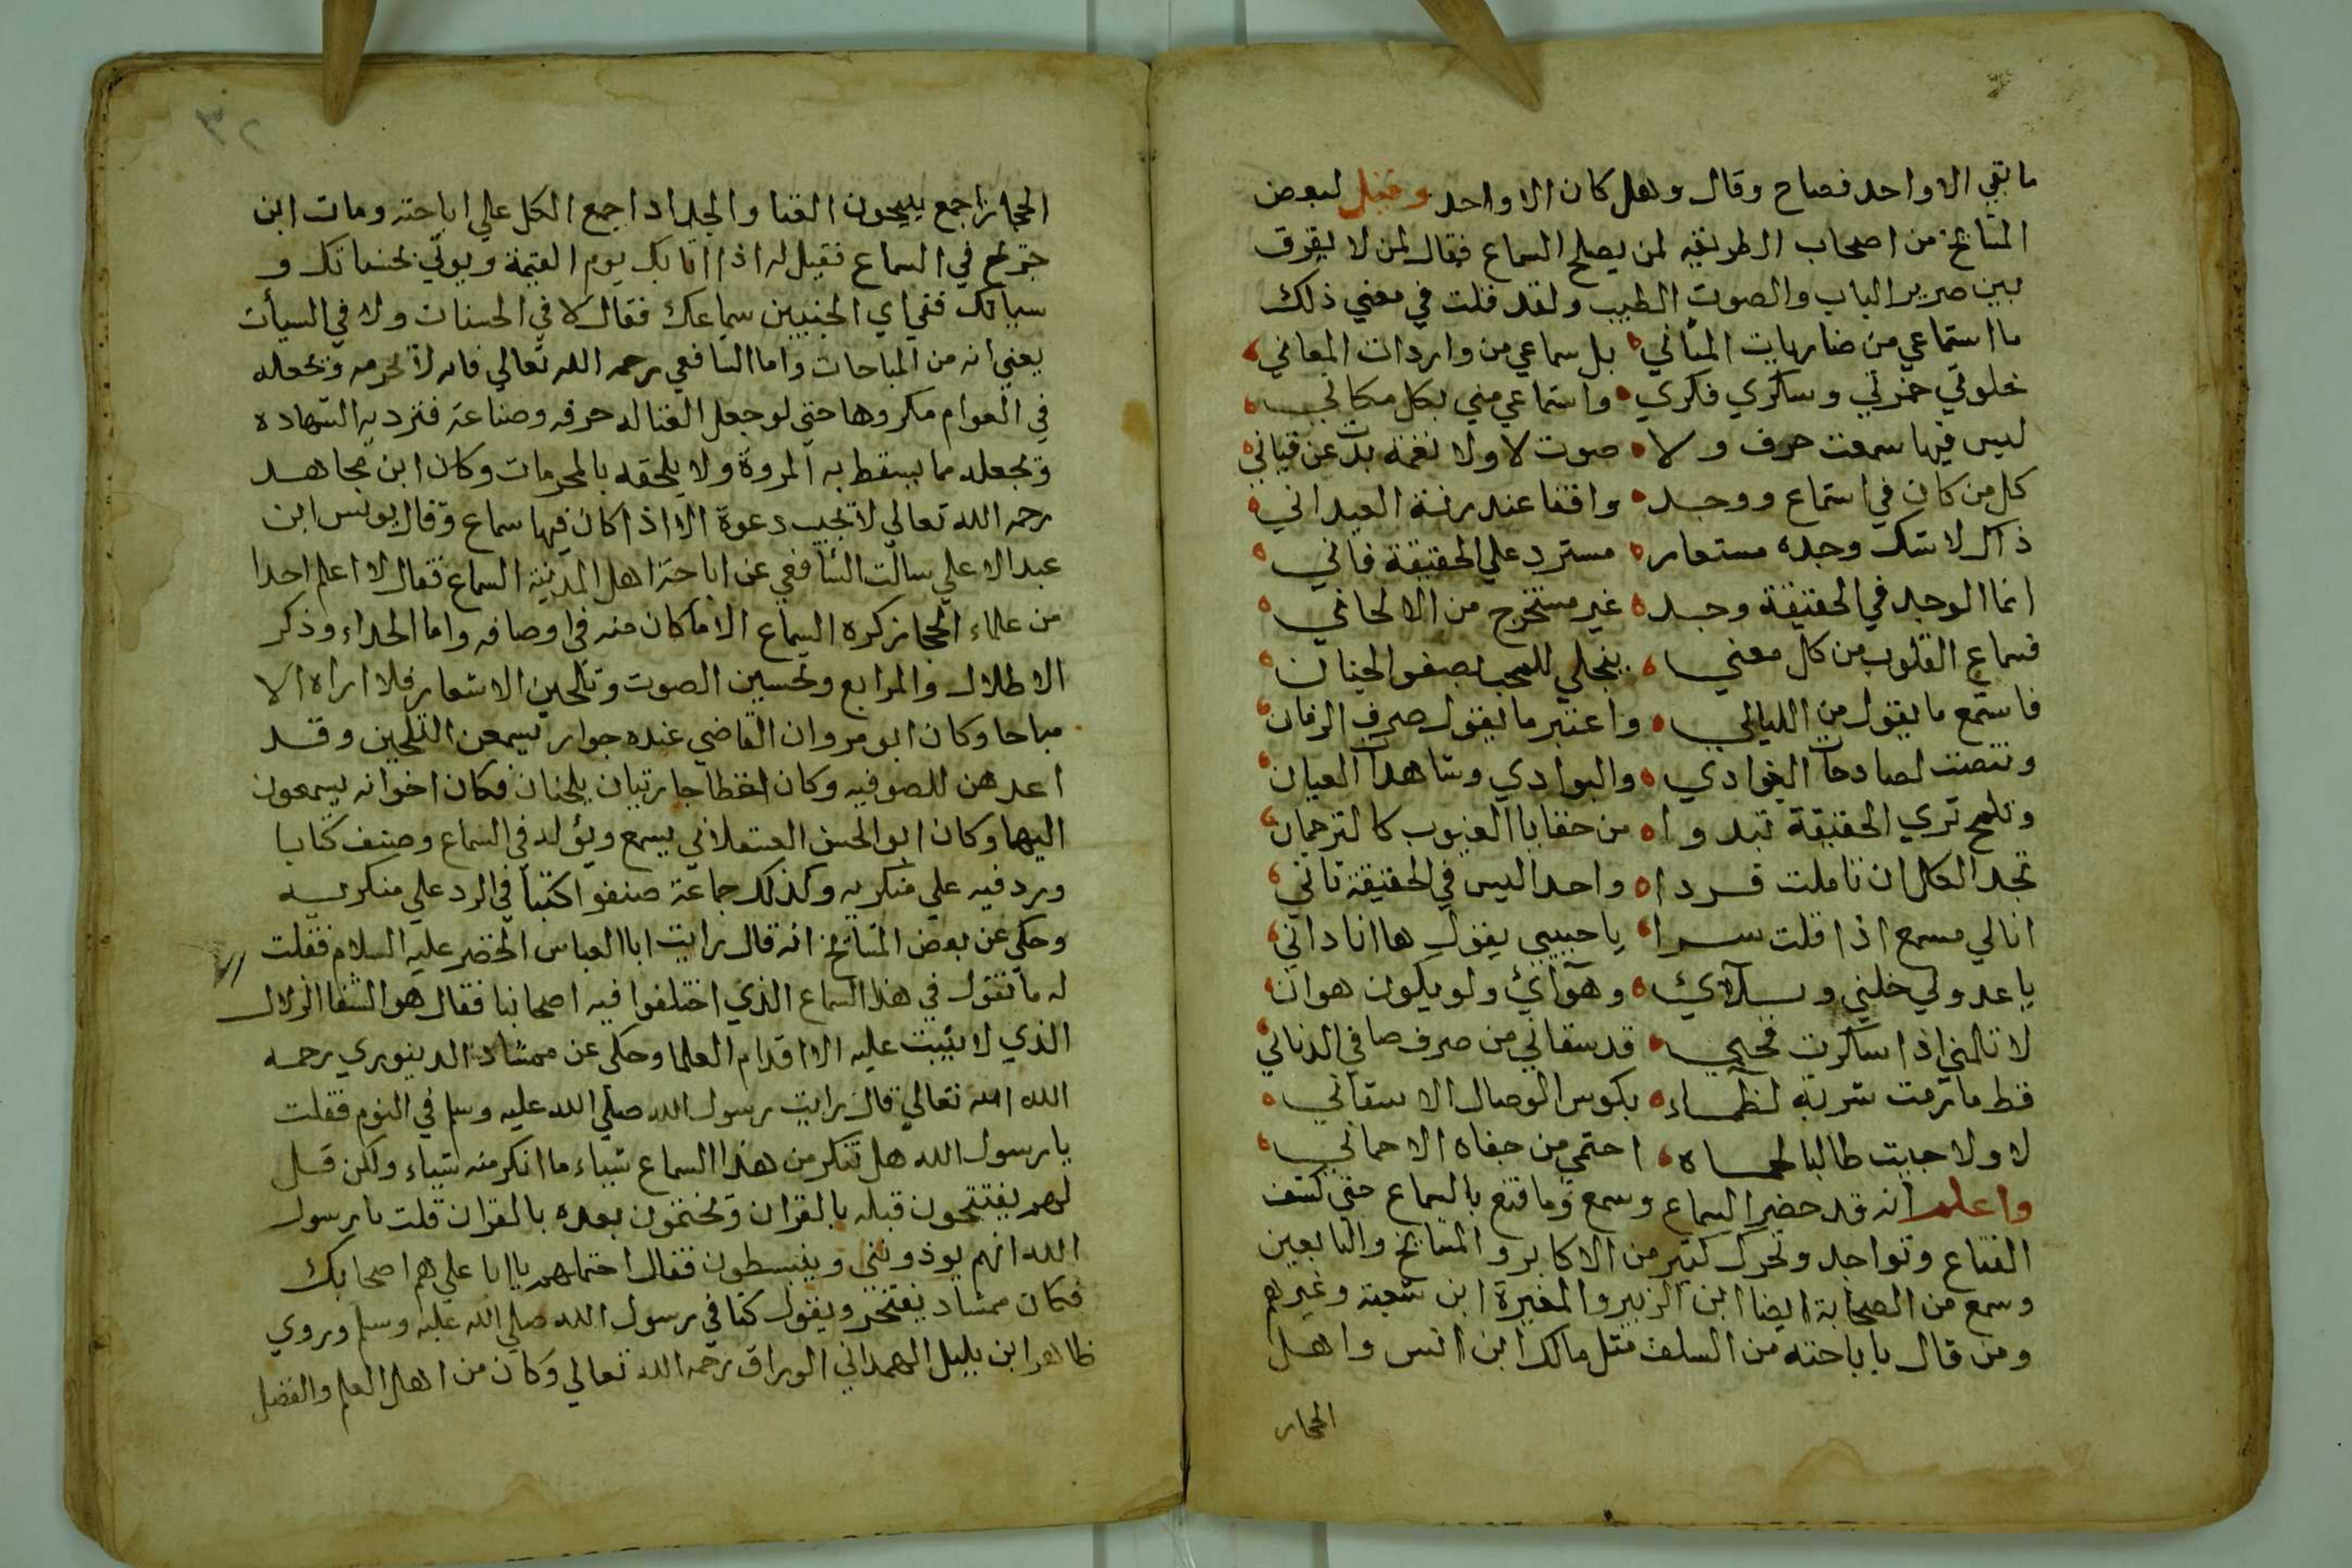 ما بقي الا واحد فصاح وقال وهل كان الا واحد وقيل لبعض
المشايخ من اصحاب الطريقه لمن يصلح السماع فقال لمن لا يفرق
بين صرير الباب والصوت الطيب ولقد قلت في معني ذلك
ما استماعي من ضاربات المثاني بل سماعي من واردات المعاني
خلوتي خمرتي وسكري فكري واستماعي مني بكل مكاني
ليس فيها سمعت حرف ولا صوت لا ولا نغمة بدت عن قياني
كل من كان في استماع ووجد واقفا عند رنة العيداني
ذاك لا شك وجده مستعار مسترد علي الحقيقة فاني
انما الوجد في الحقيقة وجد غير مستخرج من الالحاني
فسماع القلوب من كل معني ينجلي للمحب بصفو الجنان
فاستمع ما يقول من الليالي واعتبر ما يقول صرف الزمان
وتنصت لصادحات الغوادي والبوادي وشاهدا العيان
وتلمح تري الحقيقة تبدوا من خفايا الغيوب كالترجمان
تجد الكل ان تاملت فردا واحدا ليس في الحقيقة ثاني
انا لي مسمع اذا قلت سرا يا حبيبي يقول ها انا داني
يا عدولي خلني وبلاي وهوآئ ولو يكون هوان
لا تلمني اذا سكرت فحبي قد سقاني من صرف صافي الدناني
قط ما رمت شربة لظماء بكوس الوصال الا سقاني
لا ولا جيت طالبا لحماه احتمي من جفاه الا حماني
واعلم انه قد حضر السماع وسمع وما قنع بالسماع حتي كشف
القناع وتواجد وتحرك كثير من الاكابر والمشايخ والتابعين
وسمع من الصحابة ايضا ابن الزبير والمغيرة ابن شعبة وغيرهم
ومن قال باباحته من السلف مثل مالك ابن انس واهل
الحجاز
٣٢
الحجاز اجمع يبيحون الغنا والحداد اجمع الكل علي اباحته ومات ابن
جريج في السماع فقيل له اذا اتا بك يوم القيمة ويوتي بحسناتك و
سياتك ففي اي الجنبين سماعك فقال لا في الحسنات ولا في السيأت
يعني انه من المباحات واما الشافعي رحمه الله تعالي فانه لا يحرمه ويجعله
في العوام مكروها حتي لو جعل الغنا له حرفه وصناعة فترد به الشهاده
ويجعله مما يسقط به المروة ولا يلحقه بالمحرمات وكان ابن مجاهد
رحمه الله تعالي لا يجيب دعوة الا اذا كان فيها سماع وقال يونس ابن
عبد الاعلي سالت الشافعي عن اباحة اهل المدينة السماع فقال لا اعلم احدا
من علماء الحجاز كره السماع الا ما كان منه في اوصافه واما الحداء وذكر
الاطلال والمرابع وتحسين الصوت وتلحين الاشعار فلا اراه الا
مباحا وكان ابو مروان القاضي عنده جوار يسمعن التلحين وقد
اعدهن للصوفيه وكان لعطا جاريتان يلحنان فكان اخوانه يسمعون
اليهما وكان ابو الحسن العسقلاني يسمع ويوله في السماع وصنف كتابا
ورد فيه علي منكريه وكذلك جماعة صنفوا كتبا في الرد علي منكريه
وحكي عن بعض المشايخ انه قال رايت ابا العباس الخضر عليه السلام فقلت
له ما تقول في هذا السماع الذي اختلفوا فيه اصحابنا فقال هو الصفا الزلال
الذي لا يثبت عليه الا اقدام العلما وحكي عن ممشاد الدينوري رحمه
الله الله تعالي قال رايت رسول الله صلي الله عليه وسلم في النوم فقلت
يا رسول الله هل تنكر من هذا السماع شياء ما انكر منه شياء ولكن قل
لهم يفتتحون قبله بالقران ويختمون بعده بالقران قلت يا رسول
الله انهم يوذونني وينبسطون فقال احتملهم يا ابا علي هم اصحابك
فكان ممشاد يفتخر ويقول كنا في رسول الله صلي الله عليه وسلم وروي
طاهر ابن بليل الهمداني الوراق رحمه الله تعالي وكان من اهل العلم والفضل